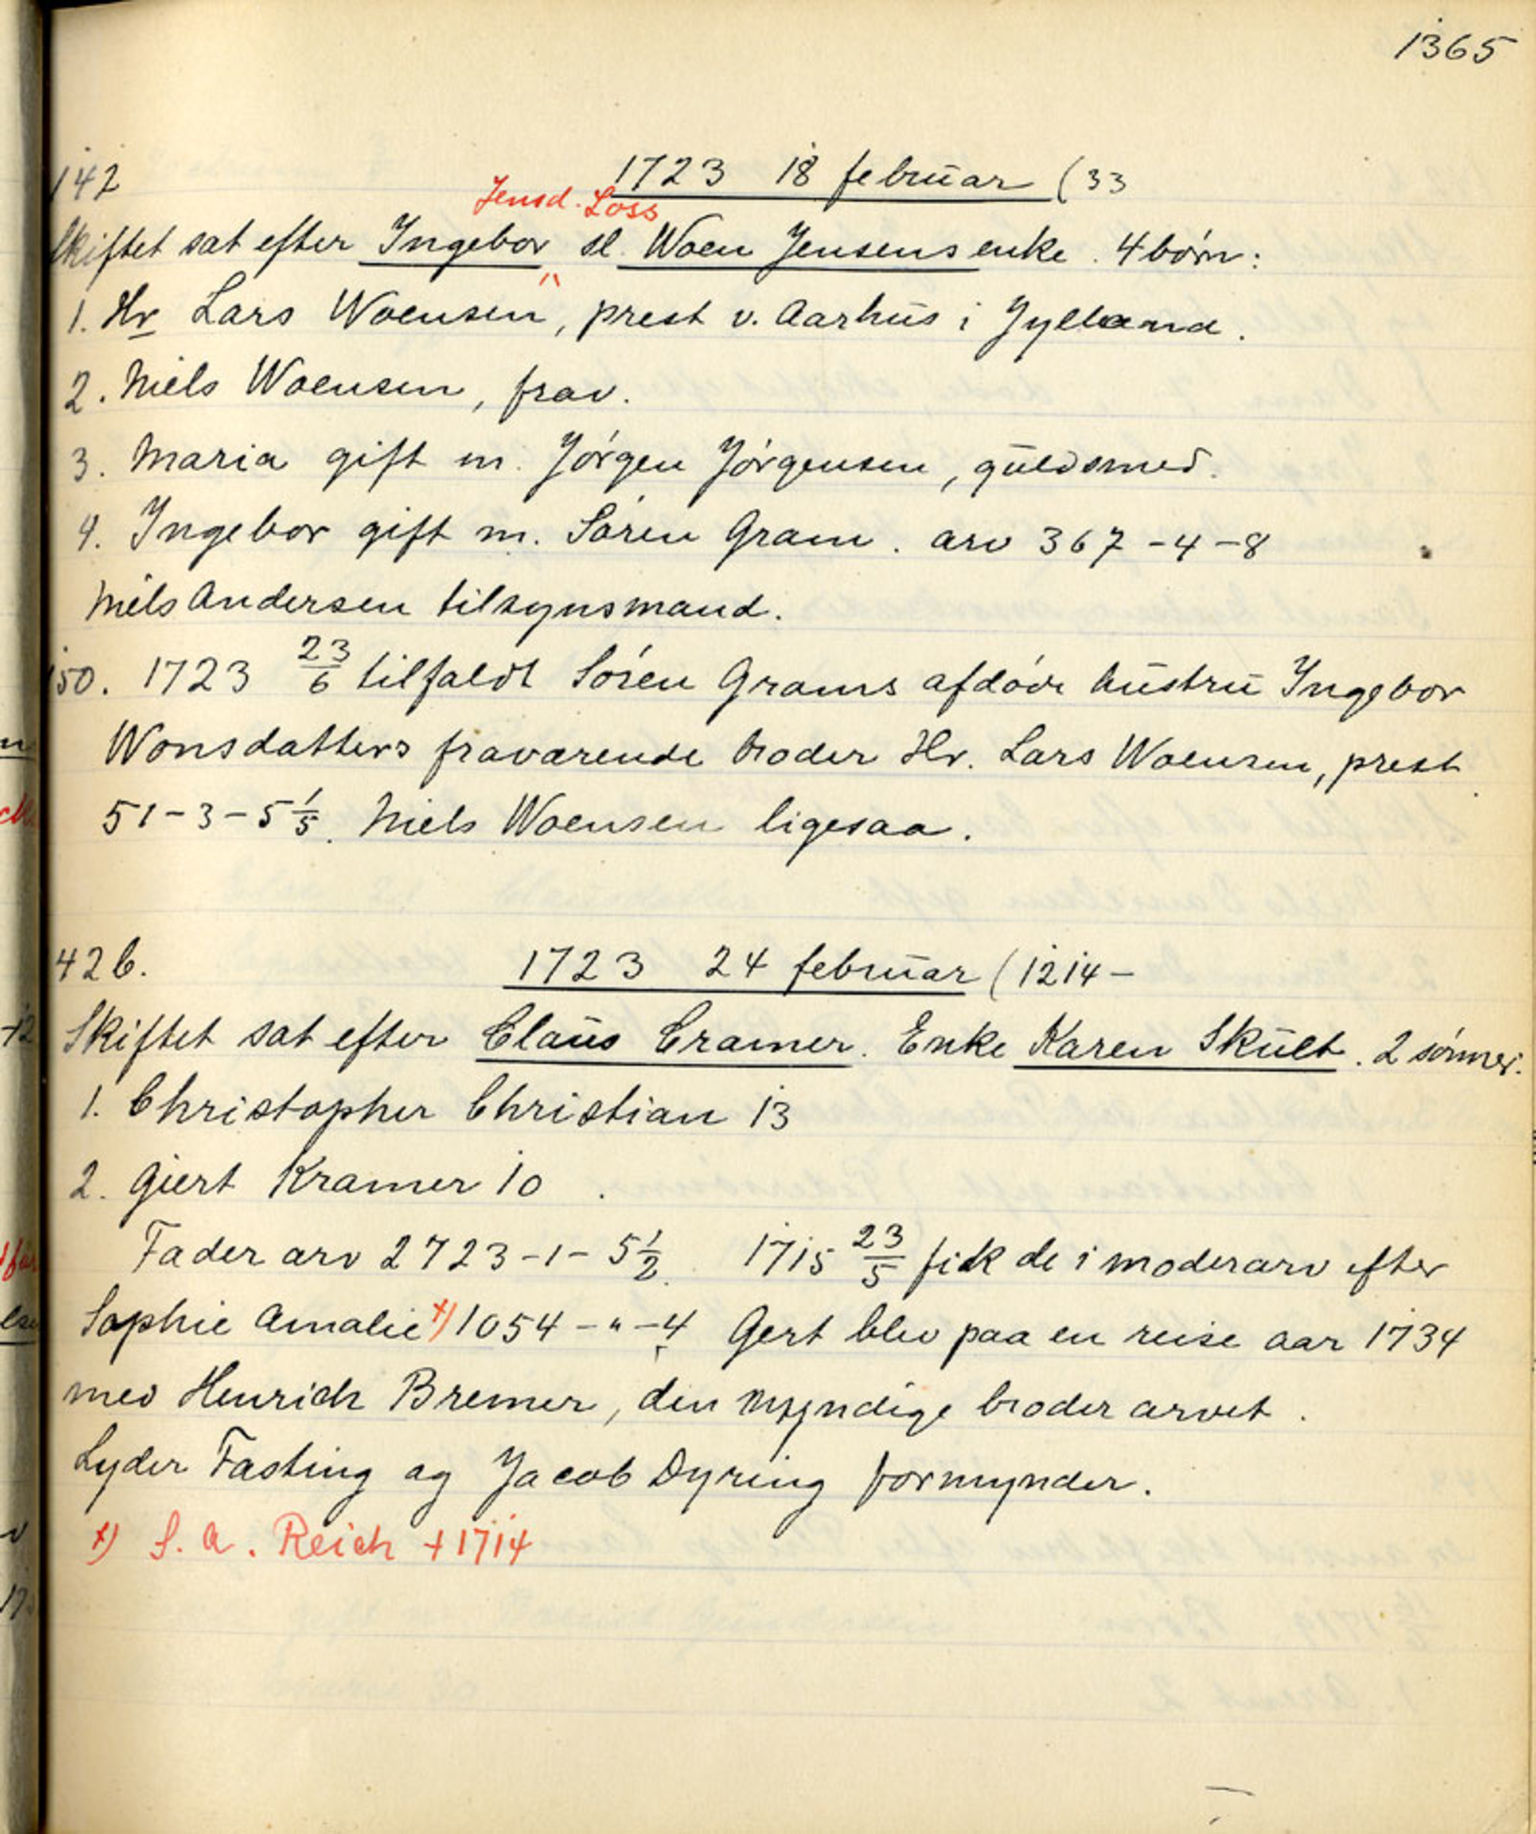 1365
142
1723 18 februar (33
Jensd. Loss
Skiftet sat efter Ingebor sl. Woen Jensens enke. 4 børn:
1. Hr Lars Woensen, prest v. Aarhus i Jylland.
2. Niels Woensen, frav.
3. Maria gift m. Jørgen Jørgensen, guldsmed.
4. Ingebor gift m. Søren Gram. arv 367-4-8
Niels Andersen tilsynsmand.
150. 1723 23/6 tilfaldt Søren Grams afdøde hustru Ingebor
Wonsdatters fraværende broder Hr. Lars Woensen, prest
51-3-5 1/5. Niels Woensen ligesaa.
42b.
1723 24 februar (1214-
Skiftet sat efter Claus Cramer. Enke Karen Skult. 2 sønner.
1. Christopher Christian 13
2. Giert Kramer 10.
Fader arv 2723-1-5 1/2. 1715 23/5 fik de i moderarv efter
Sophie Amalie x) 1054-"-4 Gert blev paa en reise aar 1734
med Henrich Bremer, den myndige broder arvet.
Lyder Fasting og Jacob Dyring formynder.
x) S. A. Reich +1714